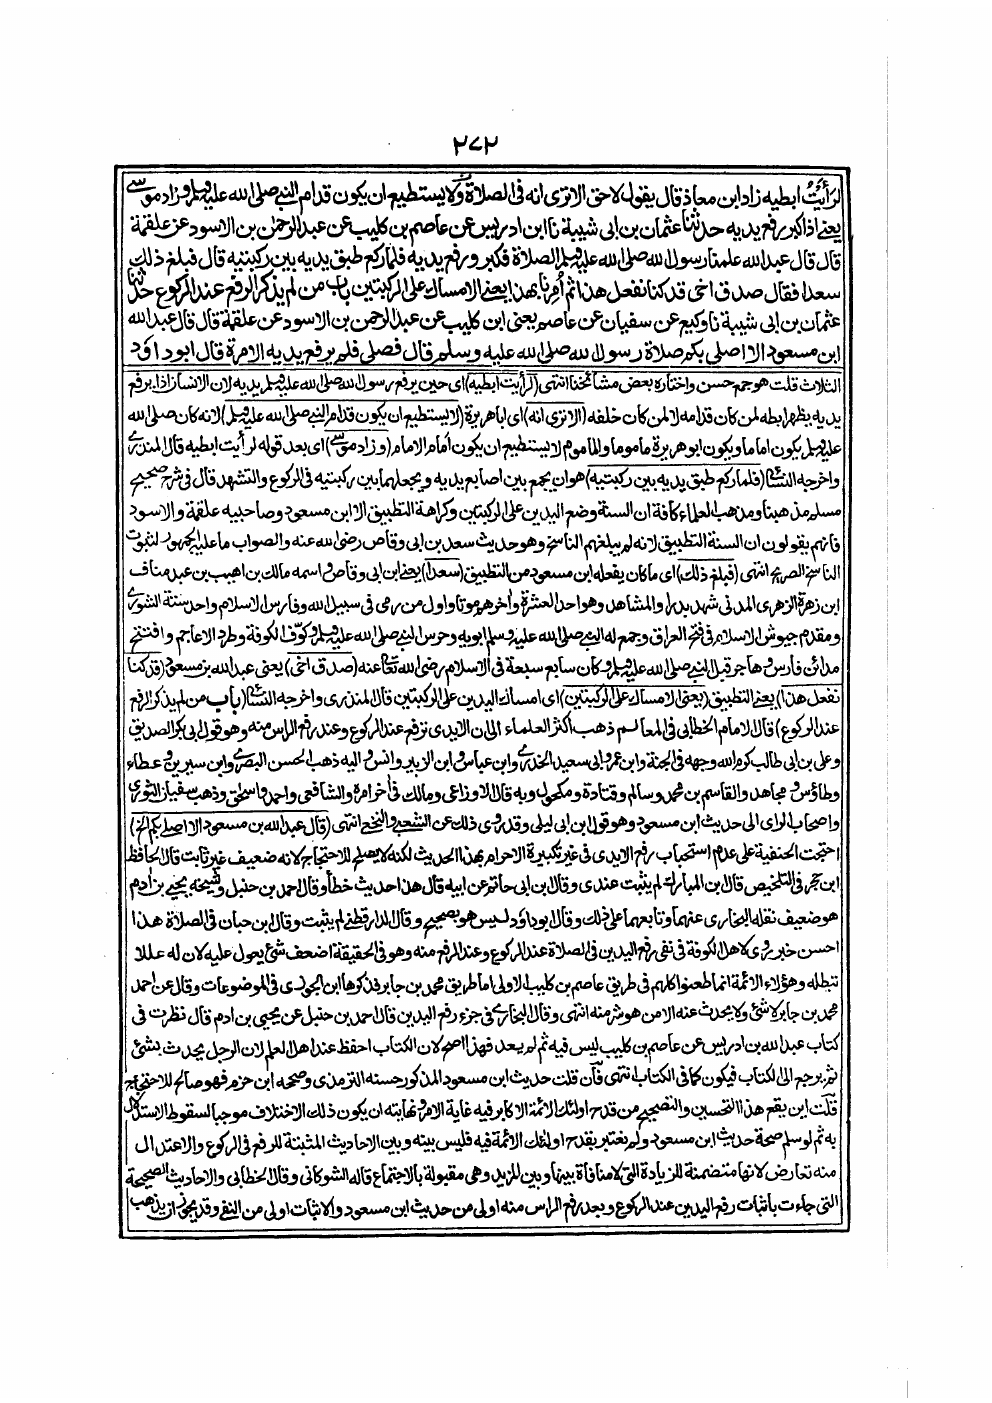 ٢٧٢
لرأيت ابطيه زاد ابن معاذ قال يقول لاحق الا ترى انه فى الصلاة ولا يستطيع ان يكون قدام النبى صلى الله عليه وسلم وزاد موسى
يعنى اذا كبر رفع يديه حدثنا عثمان بن ابى شيبة نا ابن ادريس عن عاصم بن كليب عن عبد الرحمن بن الاسود عن علقمة
قال قال عبد الله علمنا رسول الله صلى الله عليه وسلم الصلاة فكبر ورفع يديه فلما ركع طبق يديه بين ركبتيه قال فبلغ ذلك
سعدا فقال صدق اخى قد كنا نفعل هذا ثم امرنا بهذا يعنى الامساك على الركبتين باب من لم يذكر الرفع عند الركوع حدثنا
عثمان بن ابى شيبة نا وكيع عن سفيان عن عاصم يعنى ابن كليب عن عبد الرحمن بن الاسود عن علقمة قال قال عبد الله
ابن مسعود الا اصلى بكم صلاة رسول الله صلى الله عليه وسلم قال فصلى فلم يرفع يديه الا مرة قال ابو داود
الثلاث قلت هو جمع حسن واختاره بعض مشائخنا انتهى (لرأيت ابطيه) اى حين يرفع رسول الله صلى الله عليه وسلم يديه لان الانسان اذا يرفع
يديه يظهر ابطه لمن كان قدامه لا لمن كان خلفه (الا ترى انه) اى ابا هريرة (لا يستطيع ان يكون قدام النبى صلى الله عليه وسلم) لانه كان صلى الله
عليه وسلم يكون اماما ويكون ابو هريرة ماموما والماموم لا يستطيع ان يكون أمام الامام (وزاد موسى) اى بعد قوله لرأيت ابطيه قال المنذرى
واخرجه النسائى (فلما ركع طبق يديه بين ركبتيه) هو ان يجمع بين اصابع يديه ويجعلهما بين ركبتيه فى الركوع والتشهد قال فى شرح صحيح
مسلم مذهبنا ومذهب العلماء كافة ان السنة وضع اليدين على الركبتين وكراهة التطبيق الا ابن مسعود وصاحبيه علقمة والاسود
فانهم يقولون ان السنة التطبيق لانه لم يبلغهم الناسخ وهو حديث سعد بن ابى وقاص رضى الله عنه والصواب ما عليه الجمهور لثبوت
الناسخ الصريح انتهى (فبلغ ذلك) اى ما كان يفعله ابن مسعود من التطبيق (سعدا) يعنى ابن ابى وقاص واسمه مالك بن اهيب بن عبد مناف
ابن زهرة الزهرى المدنى شهد بدرا والمشاهد وهو احد العشرة وآخرهم موتا واول من رمى فى سبيل الله وفارس الاسلام واحد ستة الشورى
ومقدم جيوش الاسلام فى فتح العراق وجمع له النبى صلى الله عليه وسلم ابويه وحرس النبى صلى الله عليه وسلم وكوّف الكوفة وطرد الاعاجم وافتتح
مدائن فارس وهاجر قبل النبى صلى الله عليه وسلم وكان سابع سبعة فى الاسلام رضى الله تعالى عنه (صدق اخى) يعنى عبد الله بن مسعود (قد كنا
نفعل هذا) يعنى التطبيق (يعنى الامساك على الركبتين) اى امساك اليدين على الركبتين قال المنذرى واخرجه النسائى (باب من لم يذكر الرفع
عند الركوع) قال الامام الخطابى فى المعالم ذهب أكثر العلماء الى ان الايدى ترفع عند الركوع وعند رفع الراس منه وهو قول ابى بكر الصديق
وعلى بن ابى طالب كرم الله وجهه فى الجنة وابن عمر وابى سعيد الخدرى وابن عباس وابن الزبير وانس واليه ذهب الحسن البصرى وابن سيرين وعطاء
وطاؤس ومجاهد والقاسم بن محمد وسالم وقتادة ومكحول وبه قال الاوزاعى ومالك فى آخر امره والشافعى واحمد واسحق وذهب سفيان الثورى
واصحاب الراى الى حديث ابن مسعود وهو قول ابن ابى ليلى وقد روى ذلك عن الشعبى والنخعى انتهى (قال عبد الله بن مسعود الا اصلى بكم الخ)
احتجت الحنفية على عدم استحباب رفع الايدى فى غير تكبيرة الاحرام بهذا الحديث لكنه لا يصلح للاحتجاج لانه ضعيف غير ثابت قال الحافظ
ابن حجر فى التلخيص قال ابن المبارك لم يثبت عندى وقال ابن ابى حاتم عن ابيه قال هذا حديث خطأ وقال احمد بن حنبل وشيخه يحيى بن ادم
هو ضعيف نقله البخارى عنهما وتابعهما على ذلك وقال ابو داؤد ليس هو بصحيح وقال الدارقطنى لم يثبت وقال ابن حبان فى الصلاة هذا
احسن خبر روى لاهل الكوفة فى نفى رفع اليدين فى الصلاة عند الركوع وعند الرفع منه وهو فى الحقيقة اضعف شئ يعول عليه لان له عللا
تبطله وهؤلاء الائمة انما طعنوا كلهم فى طريق عاصم بن كليب الاولى اما طريق محمد بن جابر فذكرها ابن الجوزى فى الموضوعات وقال عن احمد
محمد بن جابر لا شئ ولا يحدث عنه الا من هو شر منه انتهى وقال البخارى فى جزء رفع اليدين قال احمد بن حنبل عن يحيى بن ادم قال نظرت فى
كتاب عبد الله بن ادريس عن عاصم بن كليب ليس فيه ثم لم يعد فهذا اصح لان الكتاب احفظ عند اهل العلم لان الرجل يحدث بشئ
ثم يرجع الى الكتاب فيكون كما فى الكتاب انتهى فان قلت حديث ابن مسعود المذكور حسنه الترمذى وصححه ابن حزم فهو صالح للاحتجاج
قلت اين يقع هذا التحسين والتصحيح من قدح اولئك الائمة الاكابر فيه غاية الامر ونهايته ان يكون ذلك الاختلاف موجبا لسقوط الاستدلال
به ثم لو سلم صحة حديث ابن مسعود ولم يعتبر بقدح اولئك الائمة فيه فليس بينه وبين الاحاديث المثبتة للرفع فى الركوع والاعتدال
منه تعارض لانها متضمنة للزيادة التى لا منافاة بينها وبين المزيد وهى مقبولة بالاجماع قاله الشوكانى وقال الخطابى والاحاديث الصحيحة
التى جاءت باثبات رفع اليدين عند الركوع وبعد رفع الراس منه اولى من حديث ابن مسعود والاثبات اولى من النفى وقد يجوز ان يذهب